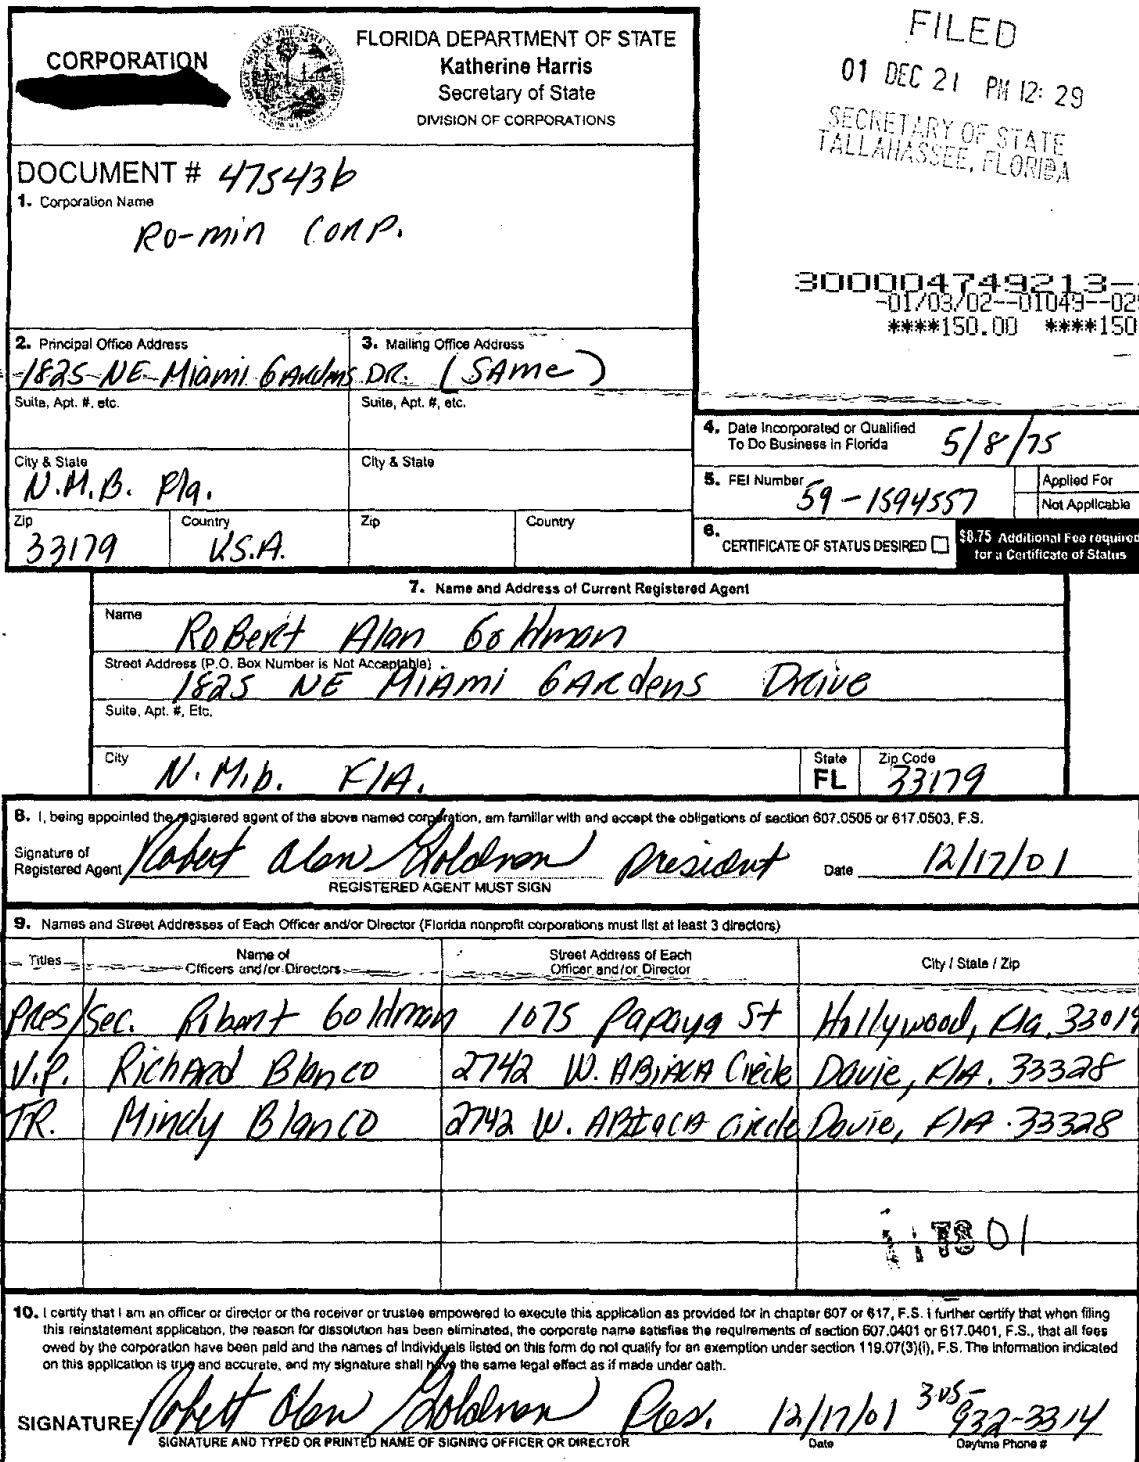 CORPORATION
FLORIDA DEPARTMENT OF STATE
Katherine Harris
Secretary of State
DIVISION OF CORPORATIONS
FILED
01 DEC 21 PM 12:29
SECRETARY OF STATE
TALLAHASSEE, FLORIDA
DOCUMENT # 475436
1. Corporation Name
Ro-min Corp.
300004749213--
-01/03/02--01049--02
****150.00 ****150
2. Principal Office Address
3. Mailing Office Address
1825 NE Miami Gardens DR. (SAme)
Suite, Apt. #, etc.
Suite, Apt. #, etc.
City & State
City & State
N.M.B. Fla.
Zip
Country
Zip
Country
33179
U.S.A.
4. Date Incorporated or Qualified
To Do Business in Florida
5/8/75
5. FEI Number
59-1594557
Applied For
Not Applicable
6.
CERTIFICATE OF STATUS DESIRED
$8.75 Additional Fee required
for a Certificate of Status
7. Name and Address of Current Registered Agent
Name
Robert Alan Goldman
Street Address (P.O. Box Number is Not Acceptable)
1825 NE Miami Gardens Drive
Suite, Apt. #, Etc.
City
N.M.b. FlA.
State
FL
Zip Code
33179
8. I, being appointed the registered agent of the above named corporation, am familiar with and accept the obligations of section 607.0505 or 617.0503, F.S.
Signature of
Registered Agent
Robert Alan Goldman president
Date
12/17/01
REGISTERED AGENT MUST SIGN
9. Names and Street Addresses of Each Officer and/or Director (Florida nonprofit corporations must list at least 3 directors)
Titles
Name of
Officers and/or Directors
Street Address of Each
Officer and/or Director
City / State / Zip
Pres/Sec. Robert Goldman 1075 Papaya St Hollywood, Fla. 33019
V.P. Richard Blanco 2742 W. ABiACA Circle Davie, FlA. 33328
TR. Mindy Blanco 2742 W. ABIACA Circle Davie, FlA. 33328
10. I certify that I am an officer or director or the receiver or trustee empowered to execute this application as provided for in chapter 607 or 617, F.S. I further certify that when filing
this reinstatement application, the reason for dissolution has been eliminated, the corporate name satisfies the requirements of section 607.0401 or 617.0401, F.S., that all fees
owed by the corporation have been paid and the names of individuals listed on this form do not qualify for an exemption under section 119.07(3)(i), F.S. The information indicated
on this application is true and accurate, and my signature shall have the same legal effect as if made under oath.
SIGNATURE: Robert Alan Goldman Pres. 12/17/01 305-932-3314
SIGNATURE AND TYPED OR PRINTED NAME OF SIGNING OFFICER OR DIRECTOR
Date
Daytime Phone #